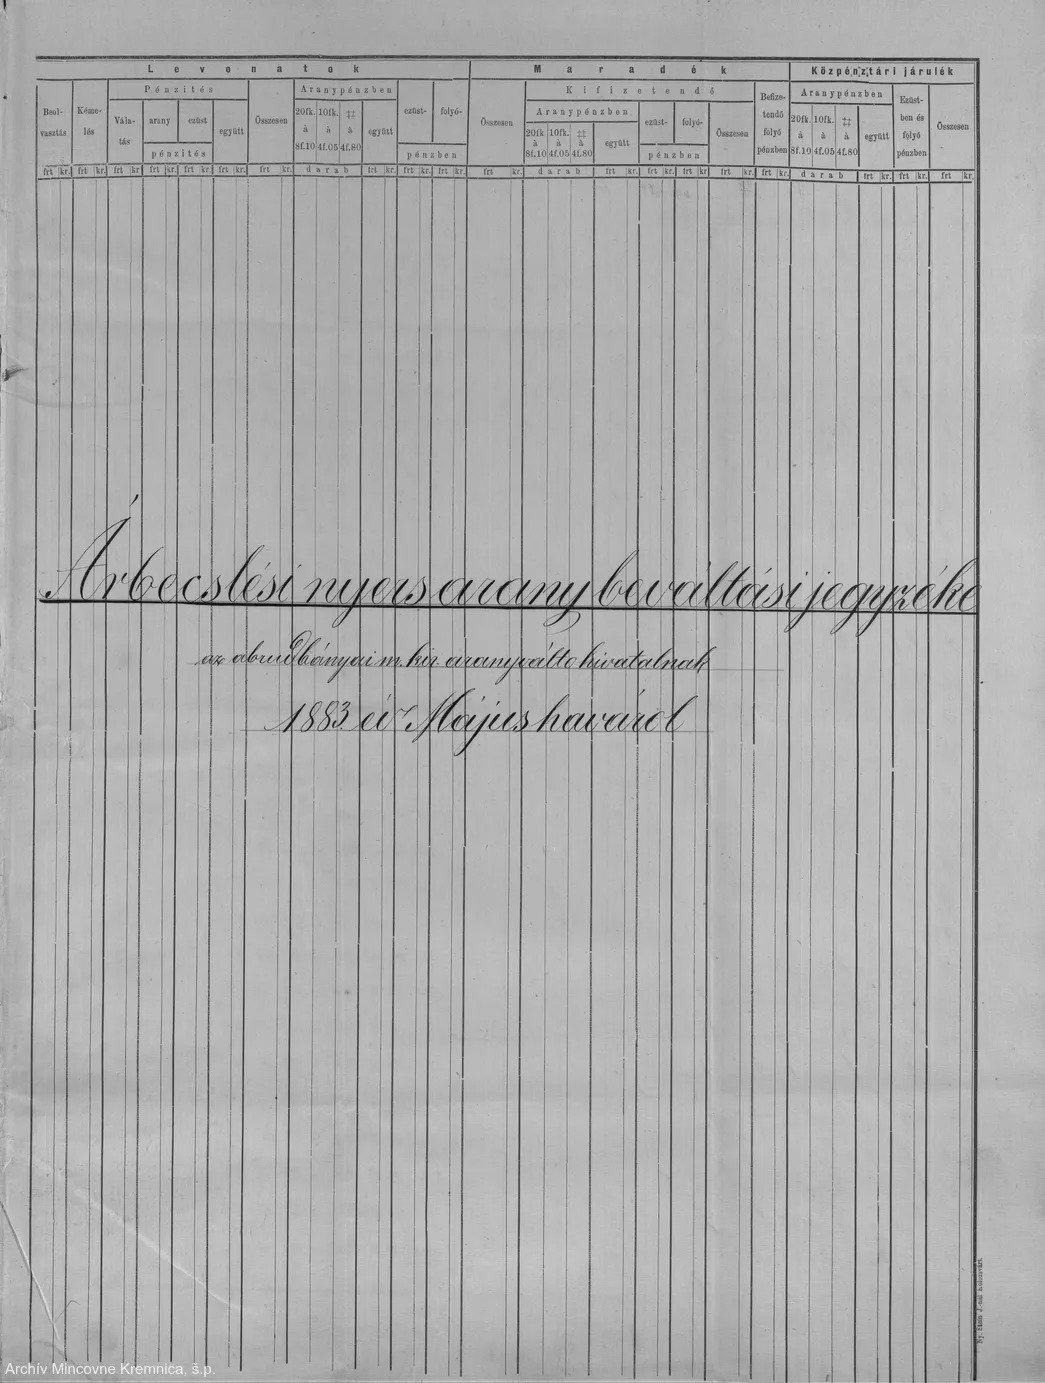 Levonatok Maradék Középénztári járulék
Pénzités Aranypénzben Kifizetendő Aranypénzben
Beol- Kéme- Vála- arany ezüst együtt Összesen 20fk. 10fk. ‡‡ együtt ezüst- folyó- Összesen Aranypénzben ezüst- folyó- Összesen Befize- 20fk. 10fk. ‡‡ együtt Ezüst- Összesen
vasztás lés tás pénzités à à à pénzben 20fk 10fk. ‡‡ együtt pénzben tendő à à à ben és
8f.10 4f.05 4f.80 à à à folyó 8f.10 4f.05 4f.80 folyó
8f.10 4f.05 4f.80 pénzben pénzben
frt kr. frt kr. frt kr. frt kr. frt kr. frt kr. frt kr. darab frt kr. frt kr. frt kr. frt kr. darab frt kr. frt kr. frt kr. frt kr. frt kr. darab frt kr. frt kr. frt kr.
Árbecslési nyers arany beváltási jegyzéke
az abrudbányai m. kir. aranyváltó hivatalnak
1883. év Május haváról
Ny. Stein J.-nál Kolozsvárt.
Archív Mincovne Kremnica, š.p.